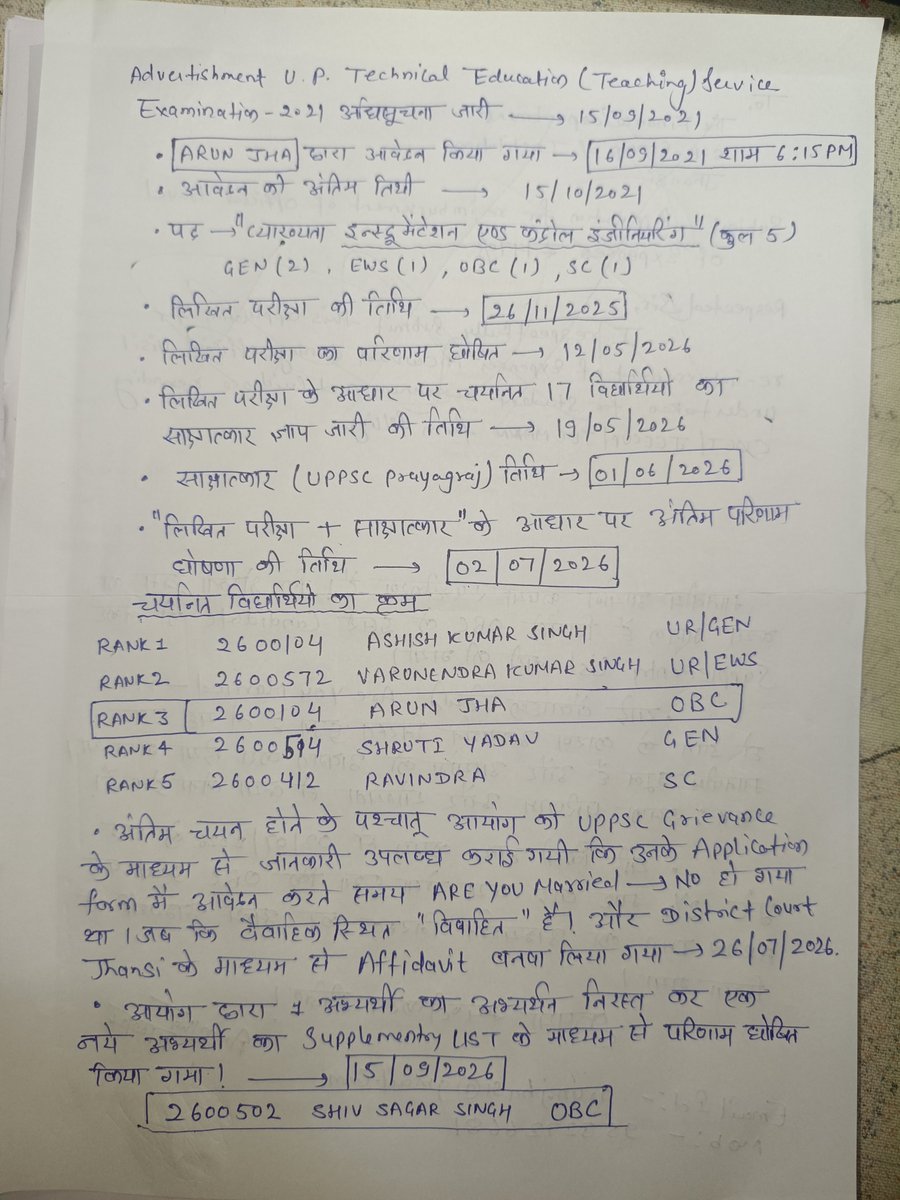 Advertishment U.P. Technical Education (Teaching) Service
Examination - 2021 अधिसूचना जारी → 15/09/2021
• ARUN JHA द्वारा आवेदन किया गया → 16/09/2021 शाम 6:15PM
• आवेदन की अंतिम तिथी → 15/10/2021
• पद → "व्याख्यता इन्स्ट्रूमेंटेशन एण्ड कंट्रोल इंजीनियरिंग" (कुल 5)
GEN (2), EWS (1), OBC (1), SC (1)
• लिखित परीक्षा की तिथि → 26/11/2025
• लिखित परीक्षा का परिणाम घोषित → 12/05/2026
• लिखित परीक्षा के आधार पर चयनित 17 विद्यार्थियो का
साक्षात्कार ज्ञाप जारी की तिथि → 19/05/2026
• साक्षात्कार (UPPSC Prayagraj) तिथि → 01/06/2026
• "लिखित परीक्षा + साक्षात्कार" के आधार पर अंतिम परिणाम
घोषणा की तिथि → 02/07/2026
चयनित विद्यार्थियो का क्रम
RANK 1 2600104 ASHISH KUMAR SINGH UR/GEN
RANK 2 2600572 VARUNENDRA KUMAR SINGH UR/EWS
RANK 3 2600104 ARUN JHA OBC
RANK 4 2600594 SHRUTI YADAV GEN
RANK 5 2600412 RAVINDRA SC
• अंतिम चयन होने के पश्चात् आयोग को UPPSC Grievance
के माध्यम से जानकारी उपलब्ध कराई गयी कि उनके Application
form मै आवेदन करते समय ARE YOU Married → NO हो गया
था। जब कि वैवाहिक स्थित "विवाहित" है। और District Court
Jhansi के माध्यम से Affidavit बनवा लिया गया → 26/07/2026.
• आयोग द्वारा 1 अभ्यर्थी का अभ्यर्थन निरस्त कर एक
नये अभ्यर्थी का Supplementry LIST के माध्यम से परिणाम घोषित
किया गया! → 15/09/2026
2600502 SHIV SAGAR SINGH OBC